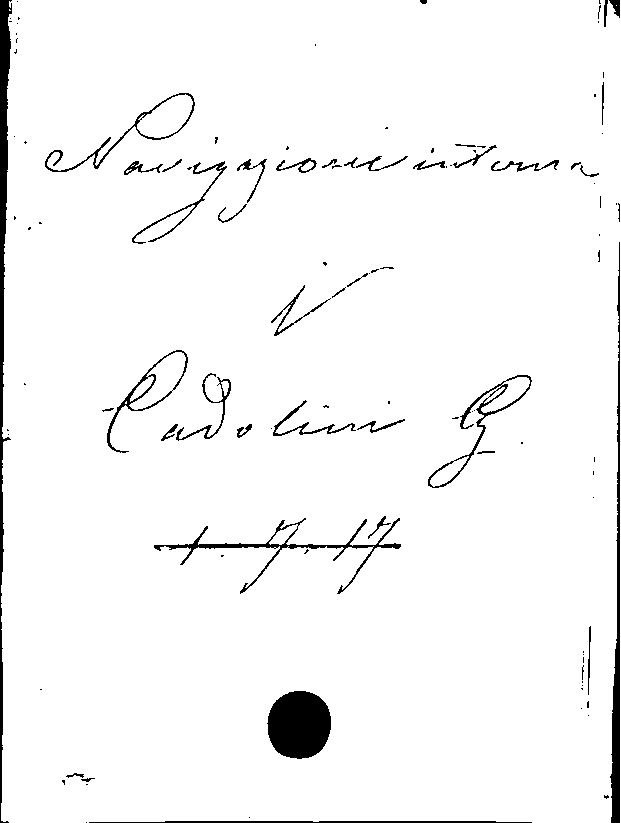 Navigazione interna
V
Cadolini G.
1. 7. 17